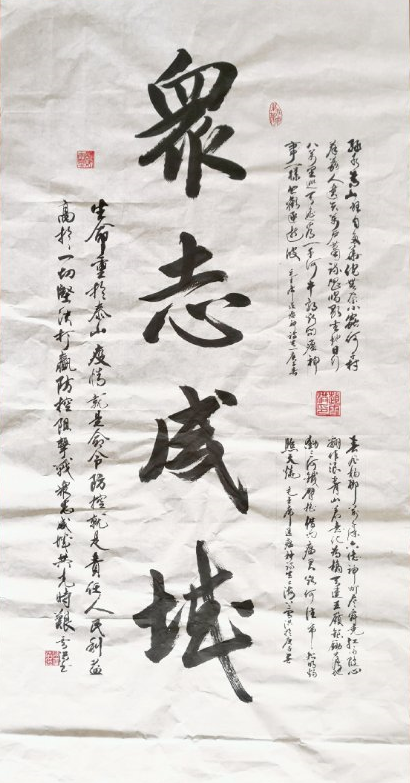 绿水青山枉自多華佗無奈小虫何千村
薜荔人遺矢萬户蕭疏鬼唱歌坐地日行
八萬里巡天遥看一千河牛郎欲问瘟神
事一樣悲歡逐逝波 毛主席送瘟神
春风杨柳万千条六億神州尽舜尧红雨隨心
翻作浪青山着意化為橋天連五嶺銀鋤落地
動三河鐵臂摇借问瘟君欲何往纸船明烛
照天烧 毛主席送瘟神
衆志成城
生命重於泰山疫情就是命令防控就是責任人民利益
高於一切堅决打贏防控阻擊戰衆志成城共克時艱